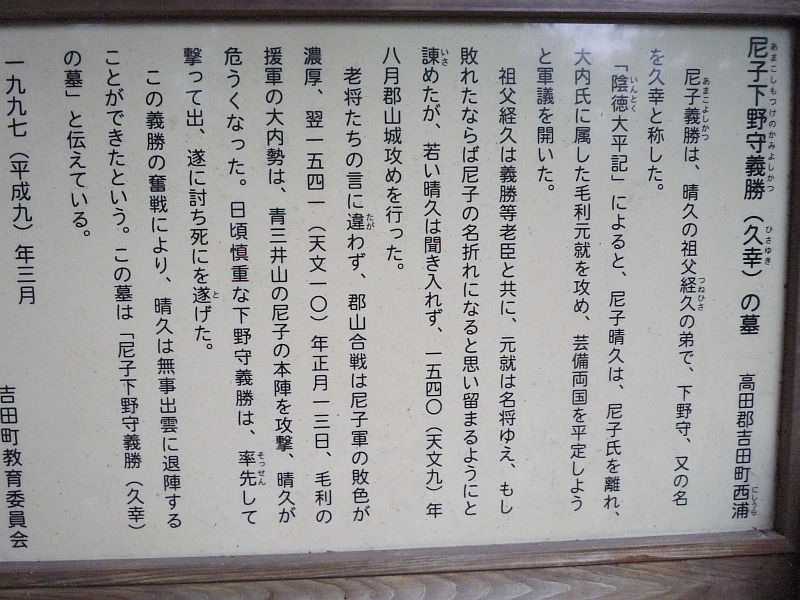 尼子下野守義勝（久幸）の墓
高田郡吉田町西浦
尼子義勝は、晴久の祖父経久の弟で、下野守、又の名
を久幸と称した。
「陰徳太平記」によると、尼子晴久は、尼子氏を離れ、
大内氏に属した毛利元就を攻め、芸備両国を平定しよう
と軍議を開いた。
祖父経久は義勝等老臣と共に、元就は名将ゆえ、もし
敗れたならば尼子の名折れになると思い留まるようにと
諌めたが、若い晴久は聞き入れず、一五四〇（天文九）年
八月郡山城攻めを行った。
老将たちの言に違わず、郡山合戦は尼子軍の敗色が
濃厚、翌一五四一（天文一〇）年正月一三日、毛利の
援軍の大内勢は、青三井山の尼子の本陣を攻撃、晴久が
危うくなった。日頃慎重な下野守義勝は、率先して
撃って出、遂に討ち死にを遂げた。
この義勝の奮戦により、晴久は無事出雲に退陣する
ことができたという。この墓は「尼子下野守義勝（久幸）
の墓」と伝えている。
一九九七（平成九）年三月
吉田町教育委員会